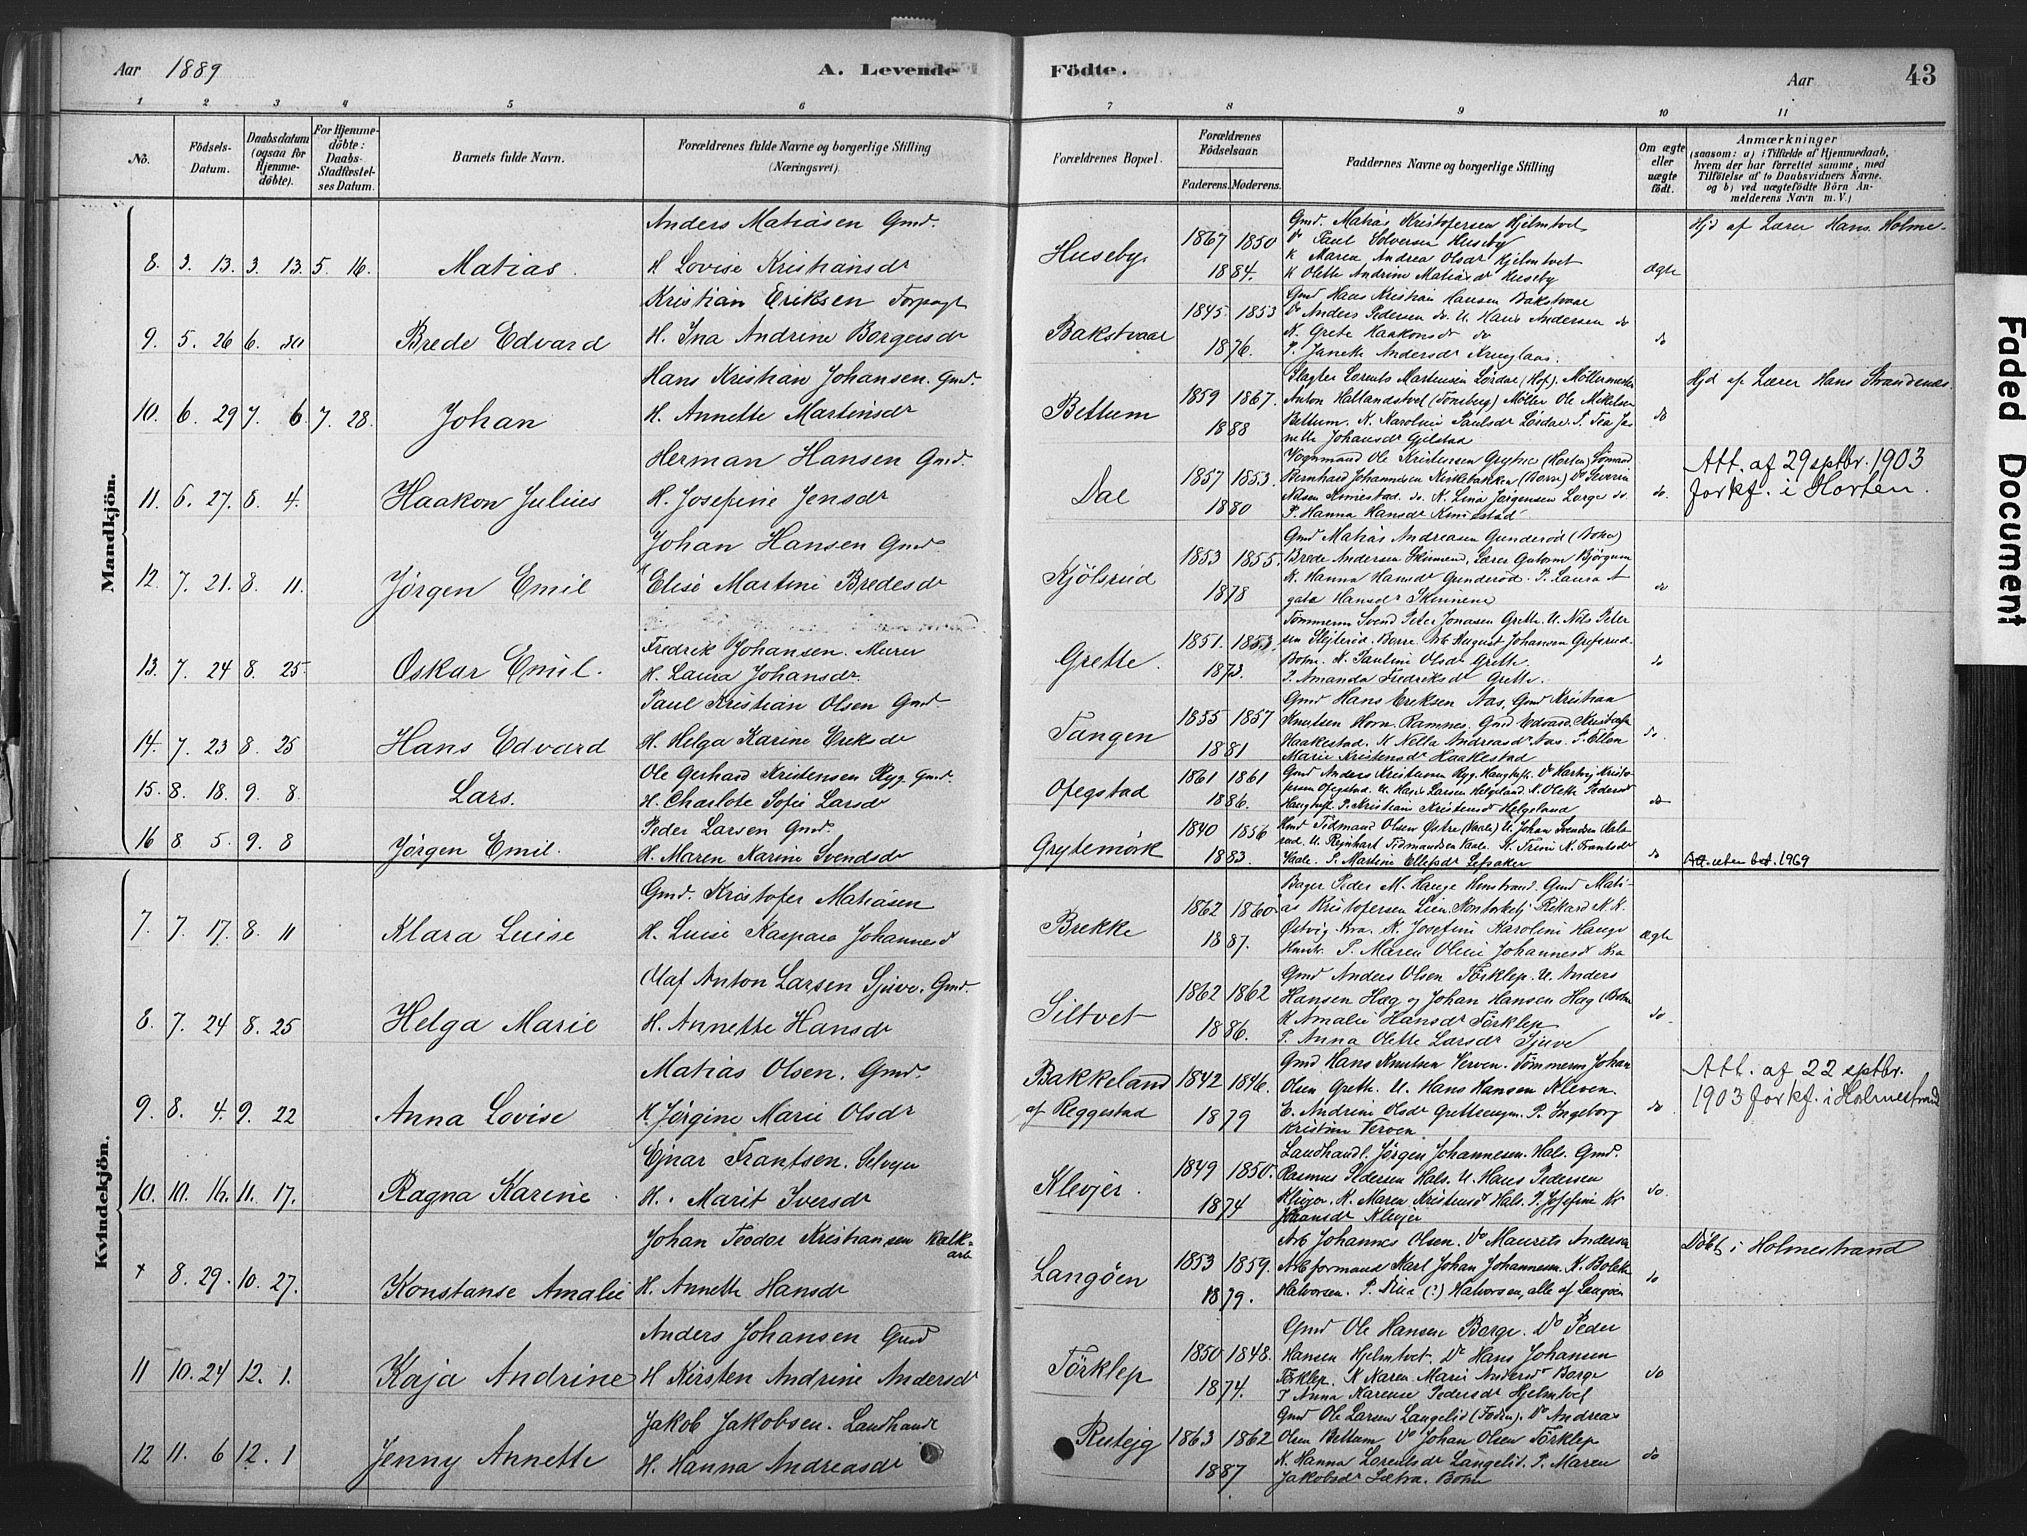 Aar 1889 A. Levende Födte. Aar 43
1 2 3 4 5 6 7 8 9 10 11
No.
Födsels-
Datum.
Daabsdatum
(ogsaa for
Hjemme-
döbte).
For Hjemme-
döbte:
Daabs-
Stadfæstel-
ses Datum.
Barnets fulde Navn.
Forældrenes fulde Navne og borgerlige Stilling
(Næringsvei).
Forældrenes Bopæl.
Forældrenes
Födselsaar.
Faderens. Moderens.
Faddernes Navne og borgerlige Stilling
Om ægte
eller
uægte
födt.
Anmærkninger
(saasom: a) i Tilfælde af Hjemmedaab,
hvem der har forrettet samme, med
Tilföielse af to Daabsvidners Navne.
og b) ved uægtefödte Börn An-
melderens Navn m. V.)
Mandkjön.
8. 3. 13. 3. 13. 5. 16. Matias.
Anders Matiasen Gmd.
H Lovise Kristiansdr
Huseby
1867 1850
1884.
Gmd. Matias Kristofersen Hjelmtvet
Do Paul Solversen Huseby
K Maren Andrea Olsdr Hjelmtvet
K Olette Andrine Matiasdr Huseby
Ægte
Hjd af Lærer Hans Holme.
9. 5. 26 6. 30 Brede Edvard
Kristian Eriksen Forpagt
H. Ina Andrine Borgersdr
Bakstvaal
1845. 1853
1876.
Gmd Hans Kristian Hansen Bakstvaal
Do Anders Pedersen do. U. Hans Andersen do
K. Grete Haakonsdr do
P. Janeke Andersdr
do
10. 6. 29 7. 6. 7. 28. Johan
Hans Kristian Johansen. Gmd.
H. Annette Martinsdr
Bettum
1859 1867.
1888
Slagter Lorents Martinsen Lördar (Hof). Möllermester
Anton Hallandstvet (Tönsberg) Möller Ole Mikelsen
Bettum. K. Karoline Paulsdr Lördar. P. Tea Ja-
nette Johansdr Gjelstad
do
Hjd af Lærer Hans Strandenæs
11. 6. 27. 8. 4. Haakon Julius
Herman Hansen Gmd.
H. Josefine Jensdr
Dal
1857 1853.
1880
Vognmand Ole Kristensen Grytne (Horten) Sömand
Bernhard Johannesen Kirkebakken (Borre) Do Severin
Nilsen Kimestad. do. K. Lina Jørgensen Lorge do.
P. Hanna Hansdr Kimestad
do.
Att. af 29 septbr. 1903
forkf. i Horten.
12. 7. 21. 8. 11. Jørgen Emil
Johan Hansen Gmd.
Elise Martine Bredesdr
Kjölsrud
1853 1855.
1878
Gmd Matias Andreasen Gunderöd (Botne)
Brede Andersen Skinmend, Lærer Gutorm Bjørgum
K. Hanna Hansdr Gunderöd. P. Laura A
gata Hansdr Skinnene
do
13. 7. 24 8. 25. Oskar Emil.
Fredrik Johansen. Murer
H. Laura Johansdr.
Grette.
1851. 1853.
1873.
Tömmerm Svend Peter Jonasen Grette. U. Nils Peter
sen Slejterød. Borre. Arb August Johansen Grefsrud.
Botne. K. Pauline Olsdr Grette.
P. Amanda Fredriksdr Grette.
do
14. 7. 23 8. 25 Hans Edvard
Paul Kristian Olsen Gmd
H. Helga Karine Eriksdr
Tangen
1855 1857
1881
Gmd Hans Eriksen Aas, Gmd Kristian
Knutsen Horn. Ramnes. Gmd Edvard Kristofn
Haakestad. K Nella Andreasdr Aas. P. Ellen
Marie Kristensdr Haakestad
do.
15. 8. 18. 9. 8. Lars.
Ole Gerhard Kristensen Ryg Gmd.
H. Charlote Sofie Larsdr
Ofegstad
1861 1861
1886.
Gmd Anders Kristensen Ryg. Haugtuft. Do Hartvig Kristo-
fersen Ofegstad. U. Hans Larsen Helgeland. K. Olette Pedersdr
Haugtuft. P. Kristiane Kristensdr Helgeland
do
16 8. 5. 9. 8 Jørgen Emil.
Peder Larsen Gmd.
H. Maren Karine Svendsdr
Grytemörk
1840 1856
1883.
Gmd Tidmand Olsen Østre (Vaale) U. Johan Svendsen Hals-
rud. U. Reinhart Tidmandsen Vaale. K. Trine K. Frantsdr
Vaale. P. Martine Ellefsdr Lefsaker
do
Att. uten bet. 1969
Kvindekjön.
7. 7. 17. 8. 11 Klara Luise
Gmd. Kristofer Matiasen
H. Luise Kaspara Johannesd
Brekke
1862 1860.
1887.
Bager Peder M. Hauge Hmstrand. Gmd Mati-
as Kristofersen Lien. Kontorbetj Rikard N. K.
Østvig Kra. K. Josefine Karoline Hauge
Hmstr. P. Maren Oline Johannesd Kra
Ægte
8. 7. 24 8. 25 Helga Marie
Olaf Anton Larsen Sjuve. Gmd.
H. Annette Hansdr
Siltvet
1862 1862
1886.
Gmd Anders Olsen Förklep. U. Anders
Hansen Hæg og Johan Hansen Hæg (Botne
K Amalie Hansdr Förklep
P. Anna Olette Larsdr Sjuve
do.
9. 8. 4. 9. 22 Anna Lovise
Matias Olsen. Gmd.
H. Jørgine Marie Olsdr
Bakkeland
af Reggestad
1842 1846.
1879
Gmd Hans Knutsen Verven. Tömmerm Johan
Olsen Grette. U. Hans Hansen Kleven.
E. Andrine Olsdr Gretteengen. P. Ingeborg
Kristine Verven
do
Att. af 22 septbr.
1903 forkf. i Holmestrand
10. 10. 16. 11. 17. Ragna Karine.
Ejnar Frantsen. Selvejer
H. Marit Iversdr
Klevjer.
1849 1850.
1874
Landhandl. Jørgen Johannesen. Hals. Gmd.
Rasmus Pedersen Hals. U. Hans Pedersen
Klevjer. K. Maren Kristensd Hals. P. Josefine Kr
Hansdr Klevjer
do.
+ 8. 29. 10. 27. Konstanse Amalie
Johan Teodor Kristiansen Kalk-
arb
H. Annette Hansdr
Langöen
1853 1859.
1879.
Arb Johannes Olsen. Do Maurits Andersen
Arb formand Karl Johan Johannesen. K. Bolette
Halvorsen. P. Mina (?) Halvorsen, alle af Langöen
do
Döbt i Holmestrand
11 10. 24 12. 1. Kaja Andrine
Anders Johansen Gmd
H Kirsten Andrine Andersdr
Förklep
1850 1848.
1874.
Gmd Ole Hansen Borge. Do Peder
Hansen Hjelmtvet. Do Hans Johansen
Förklep. K Karen Marie Andersd Borge
P Anna Karense Pedersdr Hjelmtvet
do
12 11. 6 12. 1 Jenny Annette
Jakob Jakobsen. Landhandl
H. Hanna Andreasdr
Rutejg
1863 1862
1887
Gmd Ole Larsen Langelid (Foden). Do Andreas
Olsen Bettum Do Johan Olsen Förklep
K. Hanna Lorentsdr Langelid. P. Maren
Jakobsdr Sætra. Botne
do
Faded Document